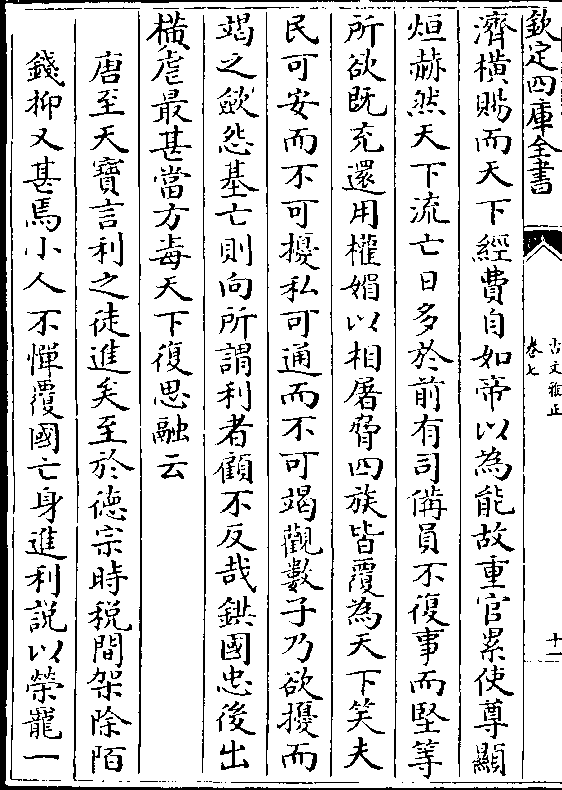 欽定四庫全書
古文雅正
卷七
十一
濟橫賜而天下經費自如帝以為能故重官累使尊顯
烜赫然天下流亡日多於前有司備員不復事而堅等
所欲既充還用權媢以相屠脅四族皆覆為天下笑夫
民可安而不可擾私可通而不可竭觀數子乃欲擾而
竭之斂怨基亡則向所謂利者顧不反哉鉷國忠後出
橫虐最甚當方毒天下復思融云
唐至天寶言利之徒進矣至於德宗時稅間架除陌
錢抑又甚焉小人不憚覆國亡身進利說以榮寵一